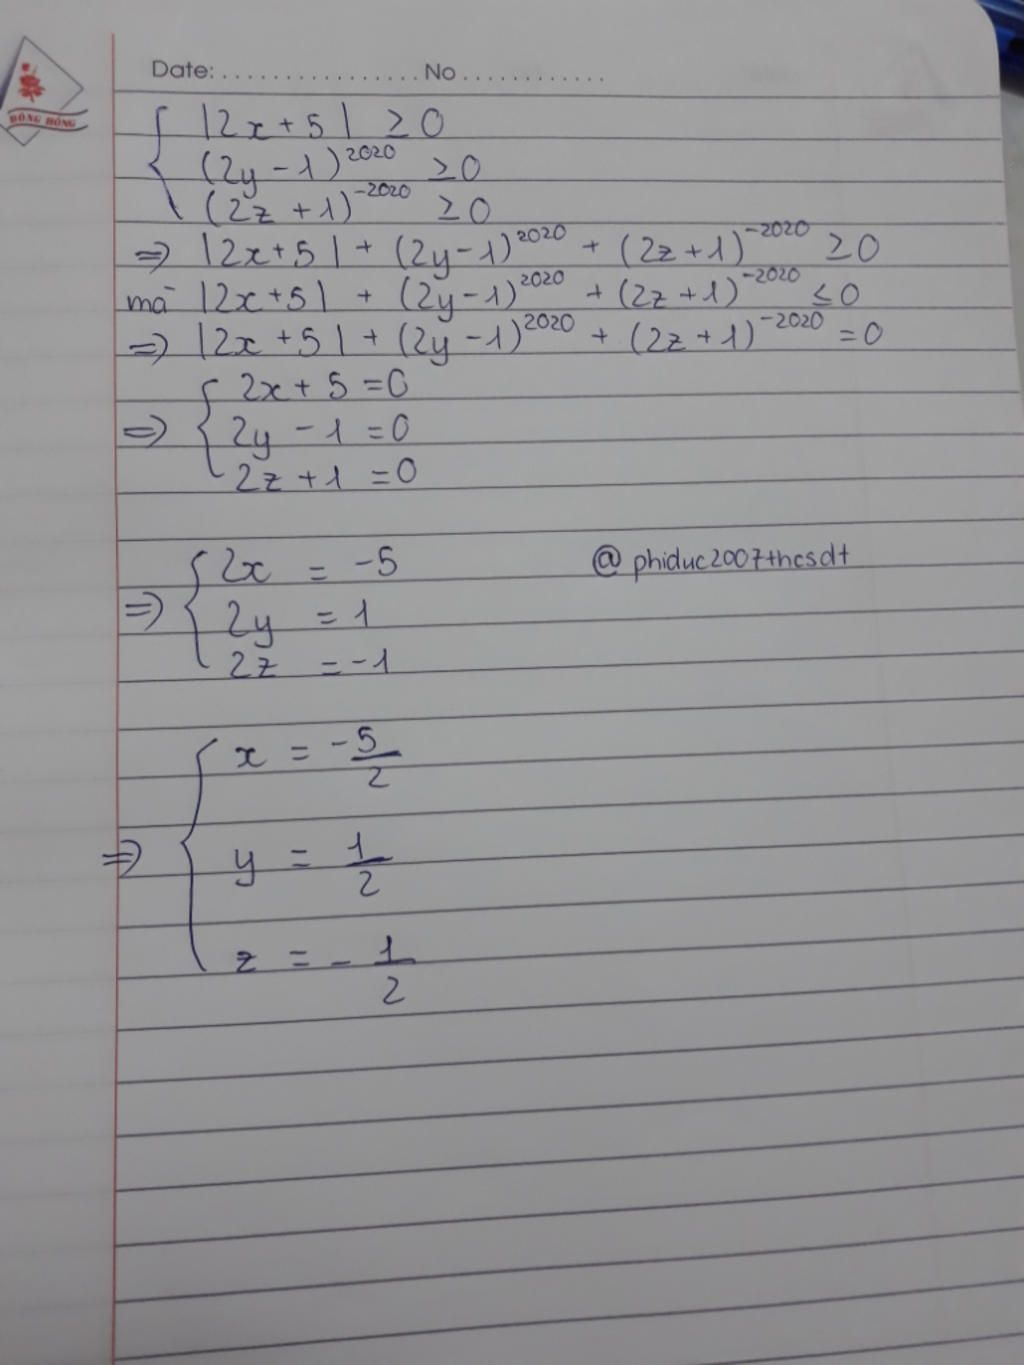 HỒNG HỒNG
Date: ................ No ............
|2x+5| ≥0
(2y-1)^2020 ≥0
(2z+1)^-2020 ≥0
=> |2x+5| + (2y-1)^2020 + (2z+1)^-2020 ≥0
mà |2x+5| + (2y-1)^2020 + (2z+1)^-2020 ≤0
=> |2x+5| + (2y-1)^2020 + (2z+1)^-2020 =0
2x+5 =0
=> 2y -1 =0
2z+1 =0
2x = -5
@phiduc2007thcsdt
=> 2y = 1
2z = -1
x = -5/2
=> y = 1/2
z = -1/2